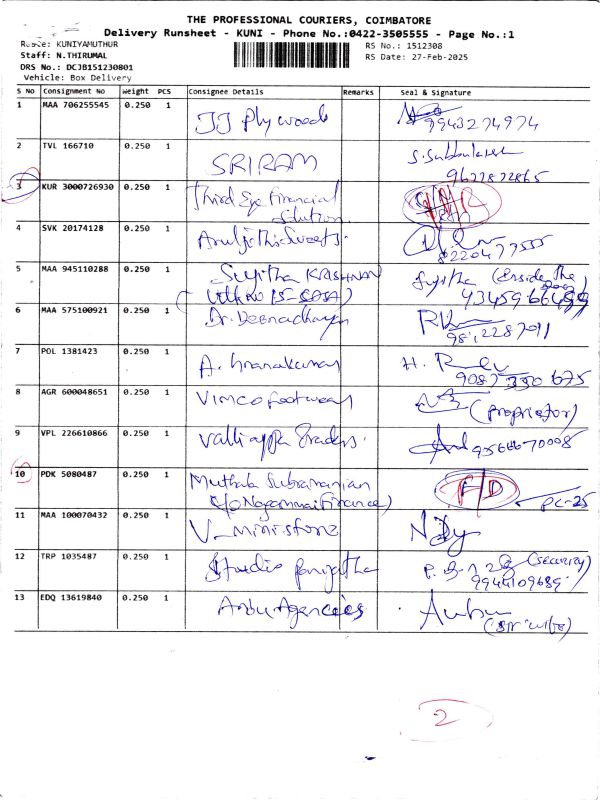 THE PROFESSIONAL COURIERS, COIMBATORE
Delivery Runsheet - KUNI - Phone No.:0422-3505555 - Page No.:1
Route: KUNIYAMUTHUR
RS No.: 1512308
Staff: N.THIRUMAL
RS Date: 27-Feb-2025
DRS No.: DCJB151230801
Vehicle: Box Delivery
S No Consignment No Weight PCS Consignee Details Remarks Seal & Signature
1 MAA 706255545 0.250 1 JJ Plywoods 9943274974
2 TVL 166710 0.250 1 SRIRAM S. Subbulakshmi
9622822865
3 KUR 3000726930 0.250 1 Third Eye Financial
Solution
4 SVK 20174128 0.250 1 Aruljothi Sweets.
8220477555
5 MAA 945110288 0.250 1 Sujitha KRISHNAN Sujitha (Inside The
6 MAA 575100921 0.250 1 Dr. Deenadhayan
7 POL 1381423 0.250 1 A. Gnanakumar
8 AGR 600048651 0.250 1 Vimco footwear (proprietor)
9 VPL 226610866 0.250 1 Valliappa Traders. 9566670008
10 PDK 5080487 0.250 1 Muthala Subramanian
c/o Nagammai Finance) PC-25
11 MAA 100070432 0.250 1 V-ministore
12 TRP 1035487 0.250 1 Studio (Security)
9944109689
13 EDQ 13619840 0.250 1 Anbu Agencies Anbu
2